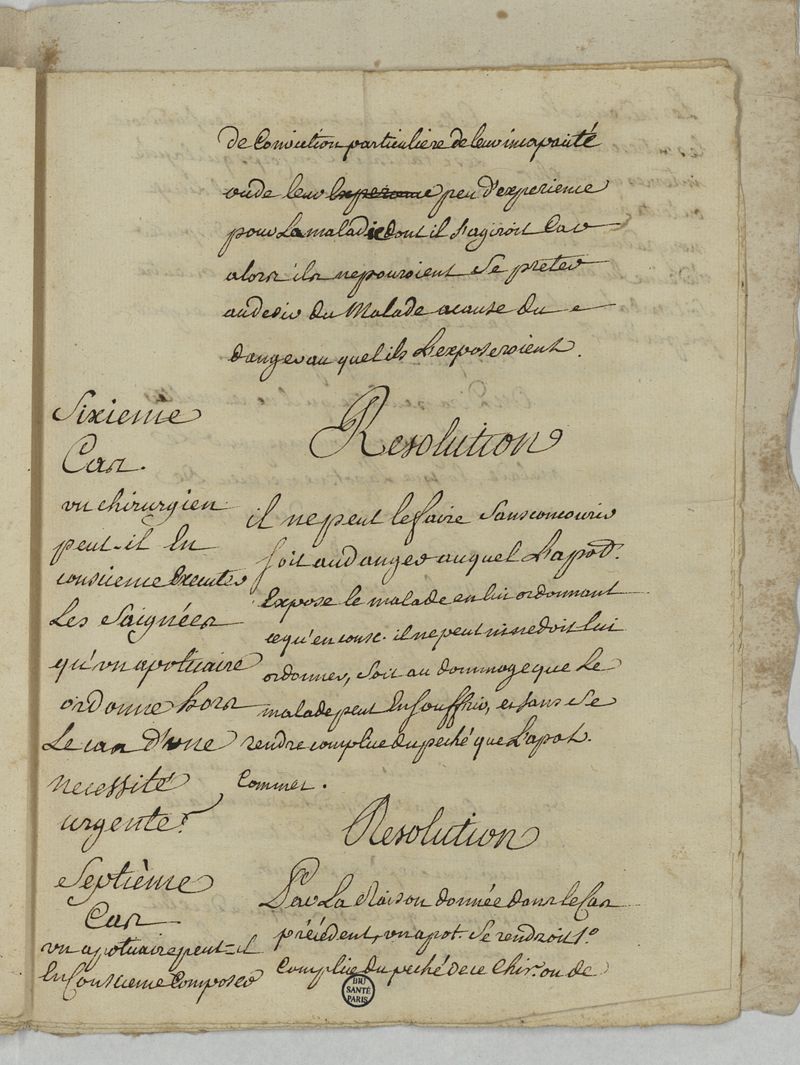 de Conviction particuliere de leur incapacité
ou de leur experience peu d'experience
pour la maladie dont il s'agiroit Car
alors ils ne pouroient se preter
au desir du Malade a cause du
danger au quel ils l'exposeroient.
Sixieme
Cas.
un chirurgien
peut-il En
conscience Executer
Les Saignées
qu'un apoticaire
ordonne hors
Le cas d'une
necessité
urgente?
Resolution
il ne peut le faire sans concourir
soit au danger auquel L'apot.
Expose le malade en lui ordonnant
ce qu'en consc. il ne peut ni ne doit lui
ordonner, soit au dommage que le
malade peut En souffrir, et sans se
rendre complice du peché que L'apot.
Commet.
Septième
Cas
un apoticaire peut-il
En Conscience Composer
Resolution
Par La Raison donnée dans le Cas
précédent, un apot. se rendroit 1.o
Complice du peché de ce Chir. ou de
BIU
SANTÉ
PARIS